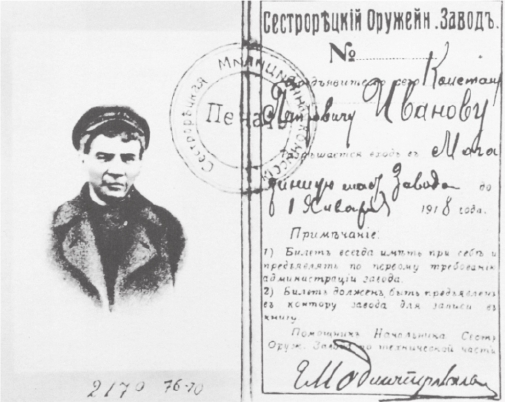 Сестрорѣцкій Оружейн. Заводъ.
№
Предъявителю сего Констан
Петровичу Иванову
Разрѣшается входъ въ Мага
зинную Завода до
1 Января 1918 года.
Примѣчаніе:
1) Билетъ всегда имѣть при себѣ и
предъявлять по первому требованію
администраціи завода.
2) Билетъ долженъ быть предъявленъ
въ контору завода для записи въ
книгу.
Помощникъ Начальника Сест
Оруж. Завода по технической части
Сестрорѣцкая
Печать
2170 76-70